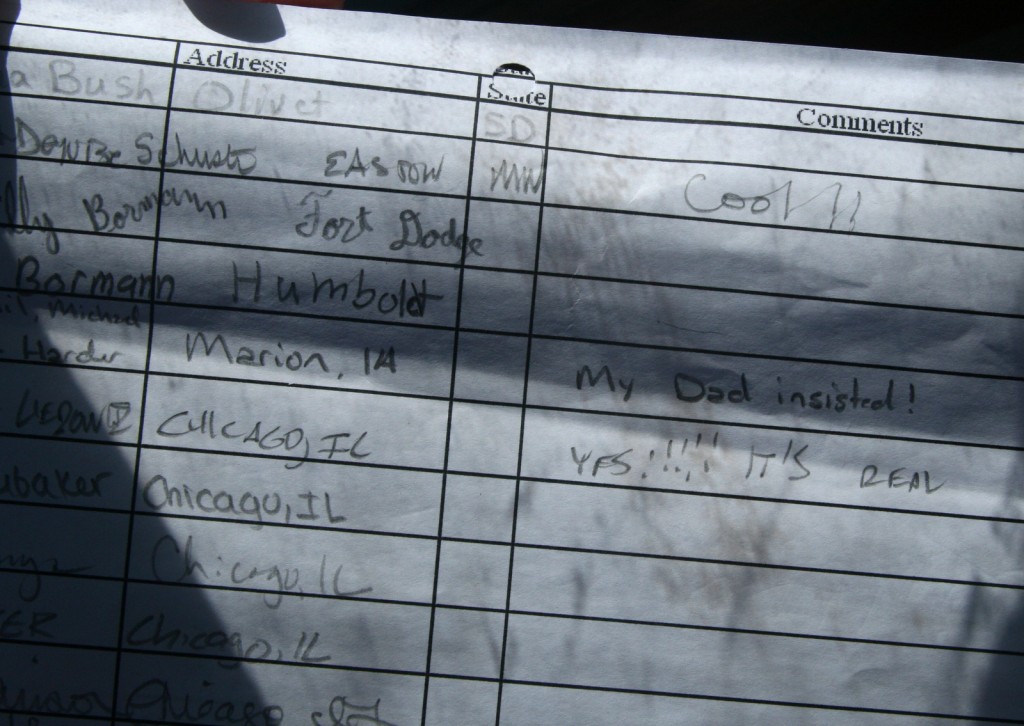 Address State Comments
a Bush Olivet SD
Schust MN Cool!!
lly Bormann Fort Dodge
Bormann Humboldt
Michael
Harder Marion, IA My Dad insisted!
CHICAGO, IL YES!!!!! IT'S REAL
ubaker Chicago, IL
Chicago, IL
ER Chicago, IL
Chicago